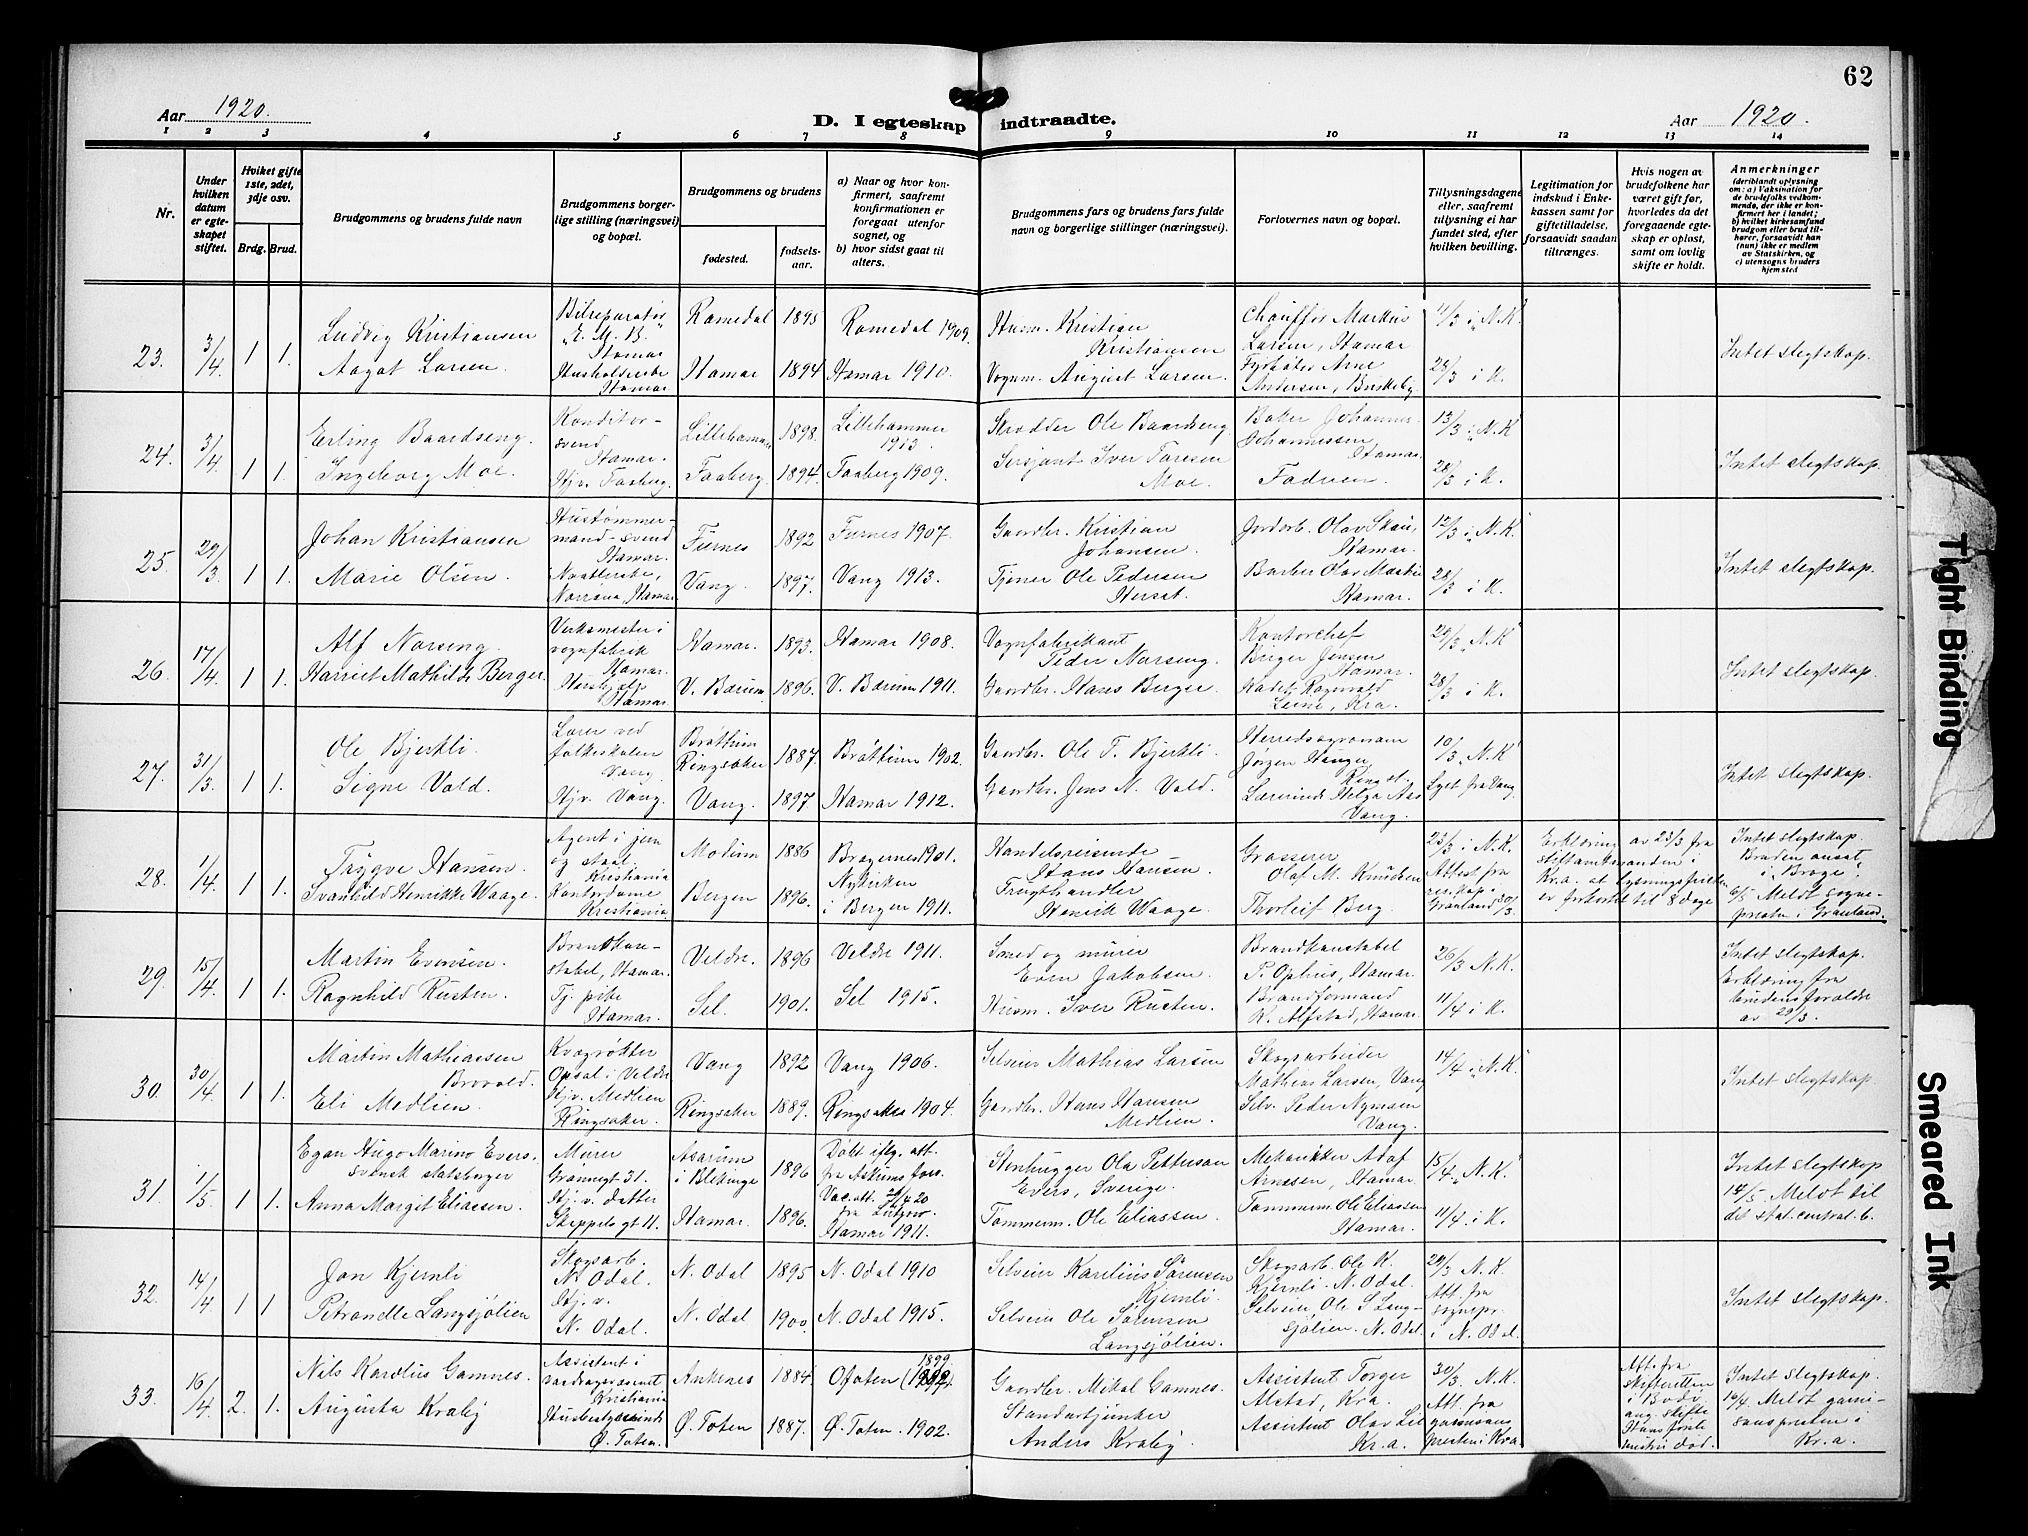 62
Aar 1920.
D. I egteskap indtraadte.
Aar 1920.
1 2 3 4 5 6 7 8 9 10 11 12 13 14
Nr.
Under hvilken datum er egteskapet stiftet.
Hviket gifte 1ste, 2det, 3dje osv.
Brdg. Brud.
Brudgommens og brudens fulde navn
Brudgommens borgerlige stilling (næringsvei) og bopæl.
Brudgommens og brudens
fødested.
fødselsaar.
a) Naar og hvor konfirmert, saafremt konfirmationen er foregaat utenfor sognet, og
b) hvor sidst gaat til alters.
Brudgommens fars og brudens fars fulde navn og borgerlige stillinger (næringsvei).
Forlovernes navn og bopæl.
Tillysningsdagene eller, saafremt tillysning ei har fundet sted, efter hvilken bevilling.
Legitimation for indskud i Enkekassen samt for giftetilladelse, forsaavidt saadan tiltrænges.
Hvis nogen av brudefolkene har været gift før, hvorledes da det foregaaende egteskap er opløst, samt om lovlig skifte er holdt.
Anmerkninger (deriblandt oplysning om: a) Vaksination for de brudefolks vedkommende, der ikke er konfirmert her i landet; b) hvilket kirkesamfund brudgom eller brud tilhører, forsaavidt han (hun) ikke er medlem av Statskirken, og c) utensogns bruders hjemsted
23. 3/4 1 1.
Ludvig Kristiansen
Aagot Larsen
Bilreparatør Hamar
Husholderske Hamar
Romedal 1895 Romedal 1909.
Hamar 1894 Hamar 1910.
Husm. Kristian Kristiansen
Vognm. August Larsen.
Chauffør Markus Larsen, Hamar
Fyrbøter Arne Andersen,
11/3 i N.K.
28/3 i K.
Intet slegtskap.
24. 3/4 1 1.
Erling Baardseng.
Ingeborg Moe.
Konditorsvend Hamar.
Hjv. Faaberg.
Lillehammer 1898. Lillehammer 1913.
Faaberg. 1894. Faaberg 1909.
Skrædder Ole Baardseng.
Sersjant Iver Toresen Moe.
Baker Johannes Johannessen, Hamar.
Fadren.
13/3 i N.K.
28/3 i K.
Intet slegtskap.
25. 29/3 1 1.
Johan Kristiansen
Marie Olsen.
Hustømmermand-svend Hamar.
Hamar.
Furnes 1892 Furnes 1907.
Vang. 1897. Vang 1913.
Gaardbr. Kristian Johansen.
Tjener Ole Pedersen Herset.
Jordarb. Olav Skau, Hamar.
Barber Olav Hamar.
12/3 i N.K.
28/3 i K.
Intet slegtskap.
26. 17/4 1 1.
Alf Norseng.
Harriet Mathilde Berger.
Verksmester i vognfabrik Hamar.
Hushjelp Hamar.
Hamar. 1893. Hamar 1908.
V. Bærum 1896. V. Bærum 1911.
Vognfabrikant Peder Norseng.
Gaardbr. Hans Berger.
Kontorchef Birger Jensen Hamar.
Kadet Ragnvald Leine, Kra.
29/3 N.K.
28/3 i K.
Intet slegtskap.
27. 31/3 1 1.
Ole Bjerkli.
Signe Vold.
Lærer ved folkeskolen Vang.
Hjv. Vang.
Brøttum Ringsaker 1887. Brøttum 1902.
Vang. 1897 Hamar 1912.
Gaardbr. Ole T. Bjerkli.
Gaardbr. Jens N. Vold.
Herredsagronom Jørgen Hauger, Ringst.
Lærerinde Helga Aas Vang.
10/3 N.K.
Lyst fra Vang.
Intet slegtskap.
28. 1/4 1 1.
Trygve Hansen.
Svanhild Henrikke Waage.
Agent i jern og staal. Kristiania
Kontordame Kristiania
Modum 1886 Bragernes 1901.
Bergen 1896. Nykirken i Bergen 1911.
Handelsreisende Hans Hansen.
Frugthandler Henrik Waage.
Grosserer Olaf M. Knudsen
Thorleif Berg.
23/3 i N.K.
Attest fra res. kap. i Grønland 30/3.
Erklæring av 23/3 fra stiftamtmanden i Kr.a. at lysningsfristen er forkortet til 8 dage
Intet slegtskap. Bruden ansat i Brøge.
6/5 Meldt sogneprestn i Grønland.
29. 15/4 1 1.
Martin Evensen.
Ragnhild Rusten.
Brandkonstabel, Hamar.
Tj. pike Hamar.
Veldre. 1896 Veldre 1911.
Sel. 1901. Sel 1915.
Smed og murer Even Jakobsen.
Husm. Iver Rusten.
Brandkonstabel P. Ophus, Hamar.
Brandformand K. Alfstad, Hamar.
26/3 N.K.
11/4 i K.
Intet slegtskap. Erklæring fra brudens forældre av 29/3.
30. 30/4 1 1.
Martin Mathiassen Brovold.
Eli Medlien.
Kvægrøkter Opsal i Veldre
Hjv. Medlien Ringsaker.
Vang 1892 Vang 1906.
Ringsaker 1889. Ringsaker 1904.
Selveier Mathias Larsen
Gaardbr. Hans Hansen Medlien.
Skogsarbeider Mathias Larsen, Vang
Selv. Peder Nymoen Vang.
14/4 i N.K.
Intet slegtskap.
31. 1/5 1 1.
Egon Hugo Marino Evers. svensk statsborger
Anna Margit Eliassen.
Murer Grønnegt 31.
Hj. v. datter Skappels gt 11.
Asarum i Blekinge 1896 Døbt iflg. att. fra Askums fors.
Vac. att. 20/4 20
Hamar. 1896. Hamar 1911.
Stenhugger Ola Petterson Evers, Sverige.
Tømmerm. Ole Eliassen.
Mekanikker Adof Arnesen, Hamar.
Tømmerm. Ole Eliassen Hamar.
15/4, N.K.
11/4 i K.
Intet slegtskap
14/5 Meldt til det stat. central. b.
32. 14/4 1 1
Jon Kjernli
Petronelle Langsjølien
Skogsarb. N. Odal.
Hj. v. N. Odal.
N. Odal 1895 N. Odal 1910
N. Odal 1900 N. Odal 1915.
Selveier Karelius Sørensen Kjernli.
Selveier Ole Sørensen Langsjølien.
Skogsarb. Ole K. Kjernli. N. Odal.
Selveier, Ole S Langsjølien. N. Odal.
29/3 N.K.
Att. fra sognepr. i N. Odal.
Intet slegtskap.
33. 16/4 2. 1.
Nils Kardlus Gamnes.
Augusta Kraby
Assistent i vasdragsvæsenet Kristiania
Husbestyrerinde Ø. Toten.
Ankenes 1884 Ofoten 1899
Ø. Toten 1887. Ø. Toten. 1902.
Gaardbr. Mikal Gamnes.
Standartjunker Anders Kraby.
Assistent Torger Alstad, Kra.
Assistent Olav Lil Kr.a.
30/3. N.K.
Att. fra garnisonspresten i Kr.a.
Att. fra skifteretten i Bodø ang. skifte Hans første hustru død.
Intet slegtskap.
19/4 Meldt garnisonspresten i Kr.a.
Tight Binding
Smeared Ink